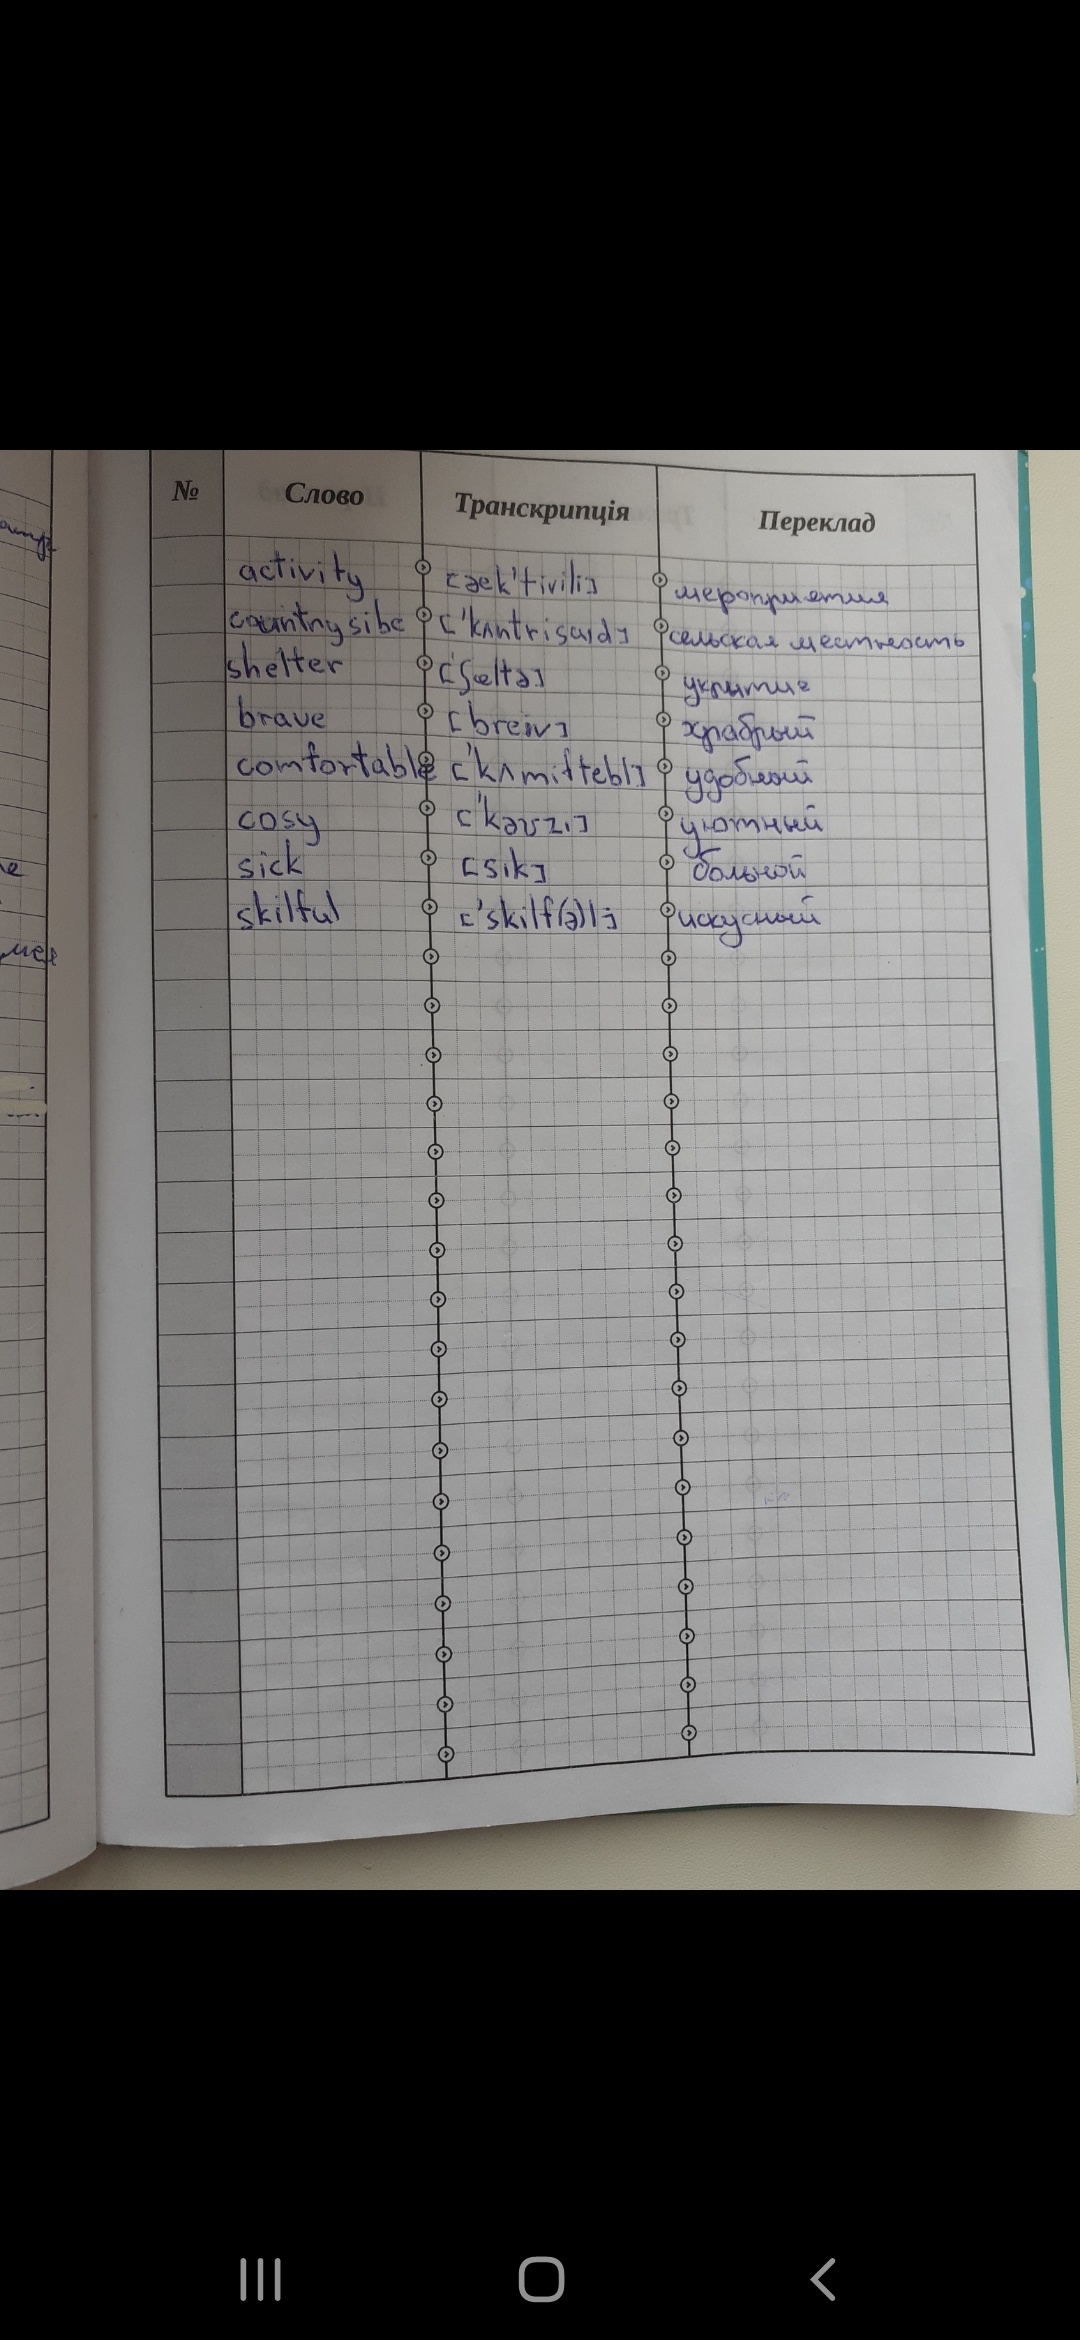 № Слово Транскрипція Переклад
activity [æek'tivili] мероприятия
countnysibe ['kʌntrisaıd] сельская местность
shelter ['ʃæltə] укрытие
brave [breıv] храбрый
comfortable ['kʌmiftebl] удобный
cosy ['kəʊzı] уютный
sick [sik] больной
skilful ['skilf(ə)l] искусный